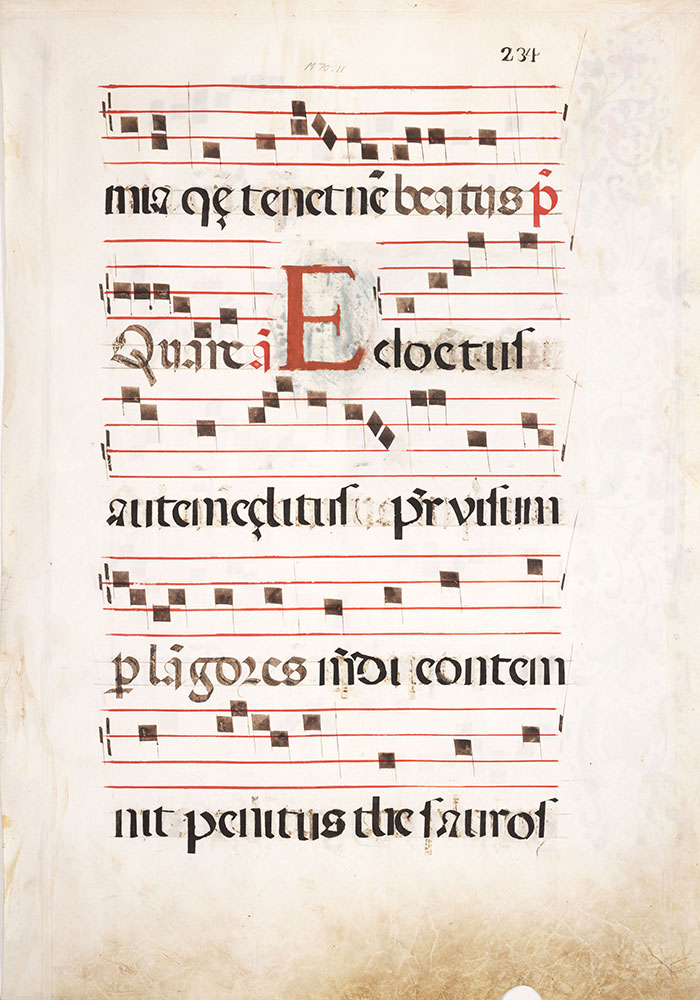 234
M 70:11
mia qȩ tenet nē beatus p̄
Quare ā Edoctus
autem ȩditus p̄r visum
p lāgores m̄di contem
nit penitus the sauros